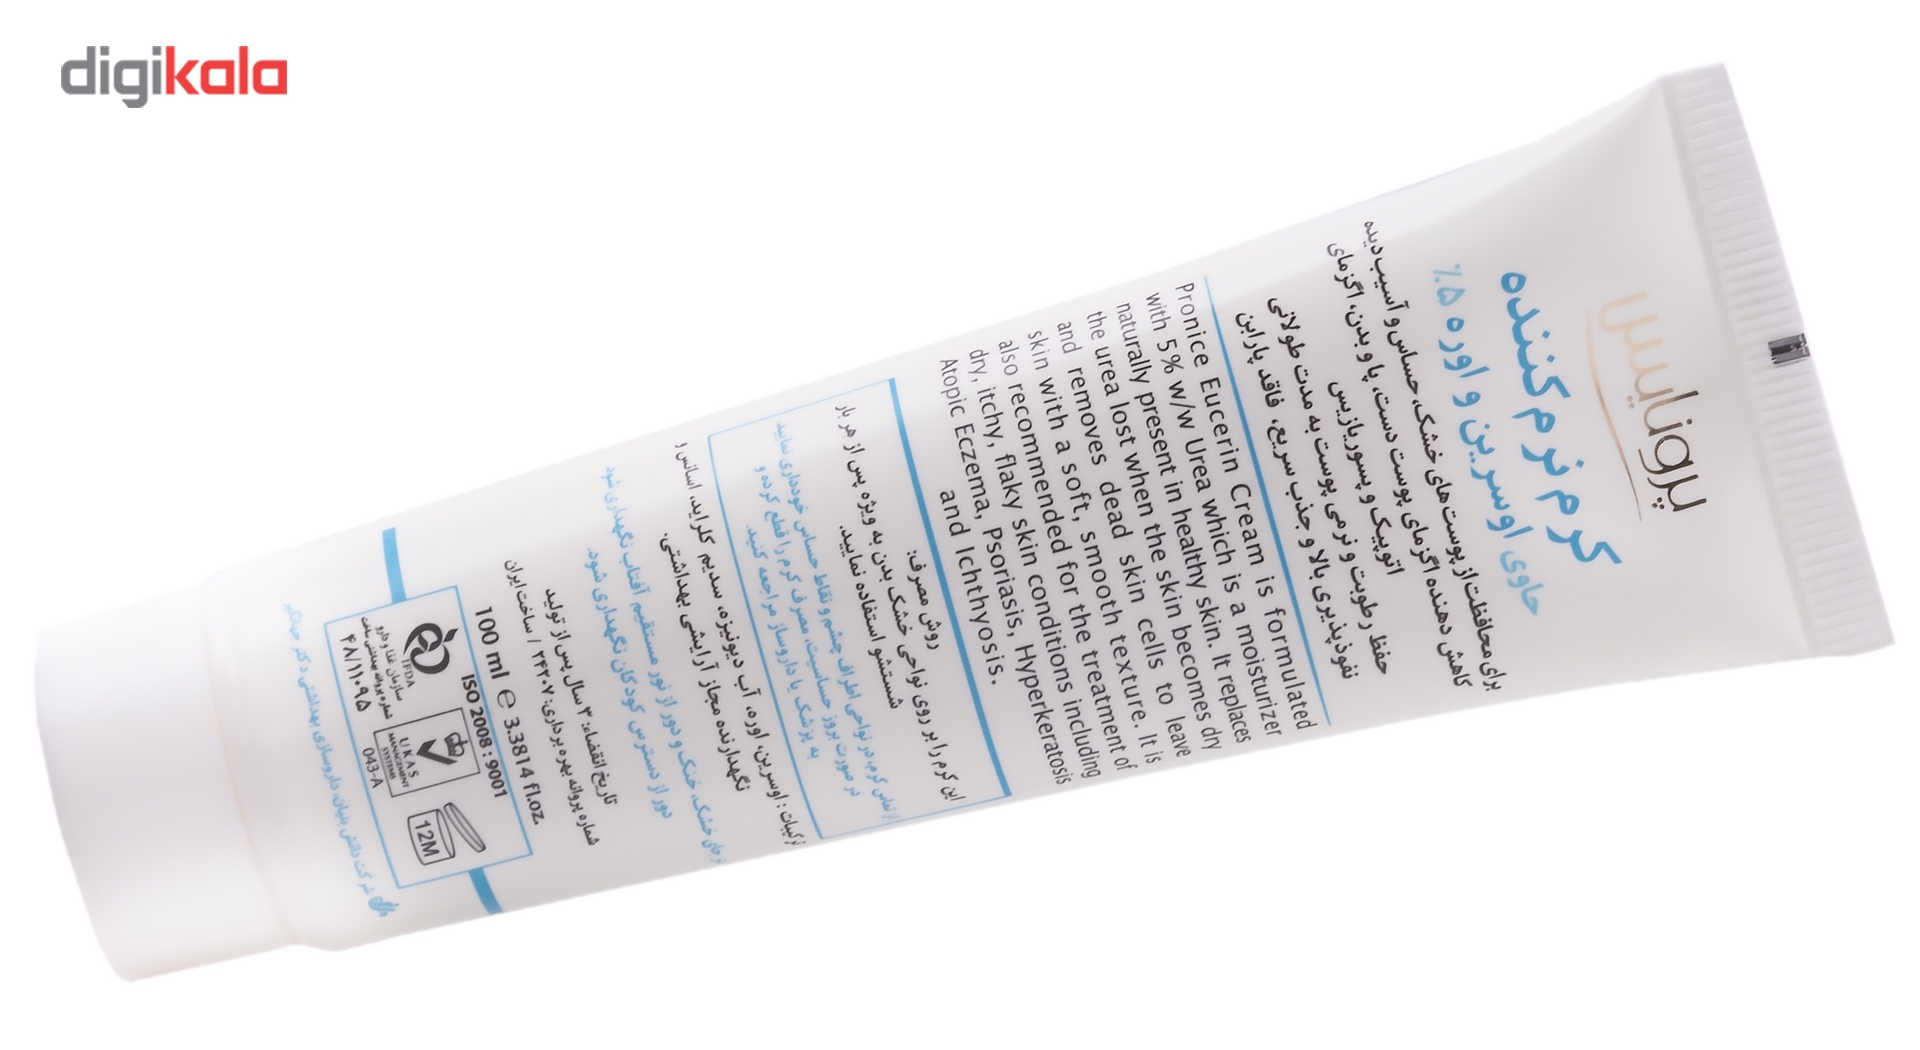 digikala
پرونایس
کرم نرم کننده
حاوی اوسرین و اوره ۵٪
برای محافظت از پوست های خشک، حساس و آسیب دیده
کاهش دهنده اگزمای پوست دست، پا و بدن، اگزمای
اتوپیک و پسوریازیس
حفظ رطوبت و نرمی پوست به مدت طولانی
نفوذپذیری بالا و جذب سریع، فاقد پارابن
Pronice Eucerin Cream is formulated
with 5% w/w Urea which is a moisturizer
naturally present in healthy skin. It replaces
the urea lost when the skin becomes dry
and removes dead skin cells to leave
skin with a soft, smooth texture. It is
also recommended for the treatment of
dry, itchy, flaky skin conditions including
Atopic Eczema, Psoriasis, Hyperkeratosis
and Ichthyosis.
روش مصرف:
این کرم را بر روی نواحی خشک بدن به ویژه پس از هر بار
شستشو استفاده نمایید.
از تماس کرم، در نواحی اطراف چشم و نقاط حساس خودداری نمایید
در صورت بروز حساسیت، مصرف کرم را قطع کرده و
به پزشک یا داروساز مراجعه کنید.
ترکیبات: اوسرین، اوره، آب دیونیزه، سدیم کلراید، اسانس و
نگهدارنده مجاز آرایشی بهداشتی.
خشک، خنک و دور از نور مستقیم آفتاب نگهداری شود
دور از دسترس کودکان نگهداری شود.
تاریخ انقضاء: ۳ سال پس از تولید
شماره پروانه بهره برداری: ۲۴۲۰۷ / ساخت ایران
100 ml e 3.3814 fl.oz.
ISO 2008 : 9001
IFDA
سازمان غذا و دارو
شماره پروانه بهداشتی ساخت
۴۸/۱۱۰۹۵
UKAS
MANAGEMENT
SYSTEMS
043-A
12M
شرکت دانش بنیان، داروسازی بهداشتی دکتر جهانگیر